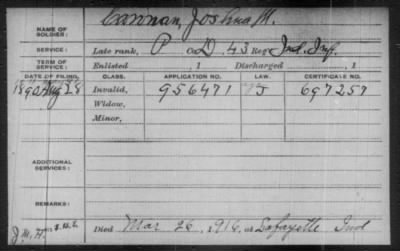 NAME OF SOLDIER: Cannan, Joshua M.
SERVICE: Late rank, P Co. D, 43 Reg't Ind. Inf.
TERM OF SERVICE: Enlisted , 1 Discharged , 1
DATE OF FILING. CLASS. APPLICATION NO. LAW. CERTIFICATE NO.
1890 Aug 28 Invalid, 956471 J 697257
Widow,
Minor,
ADDITIONAL SERVICES:
REMARKS:
Died Mar 26, 1916, at Lafayette Ind